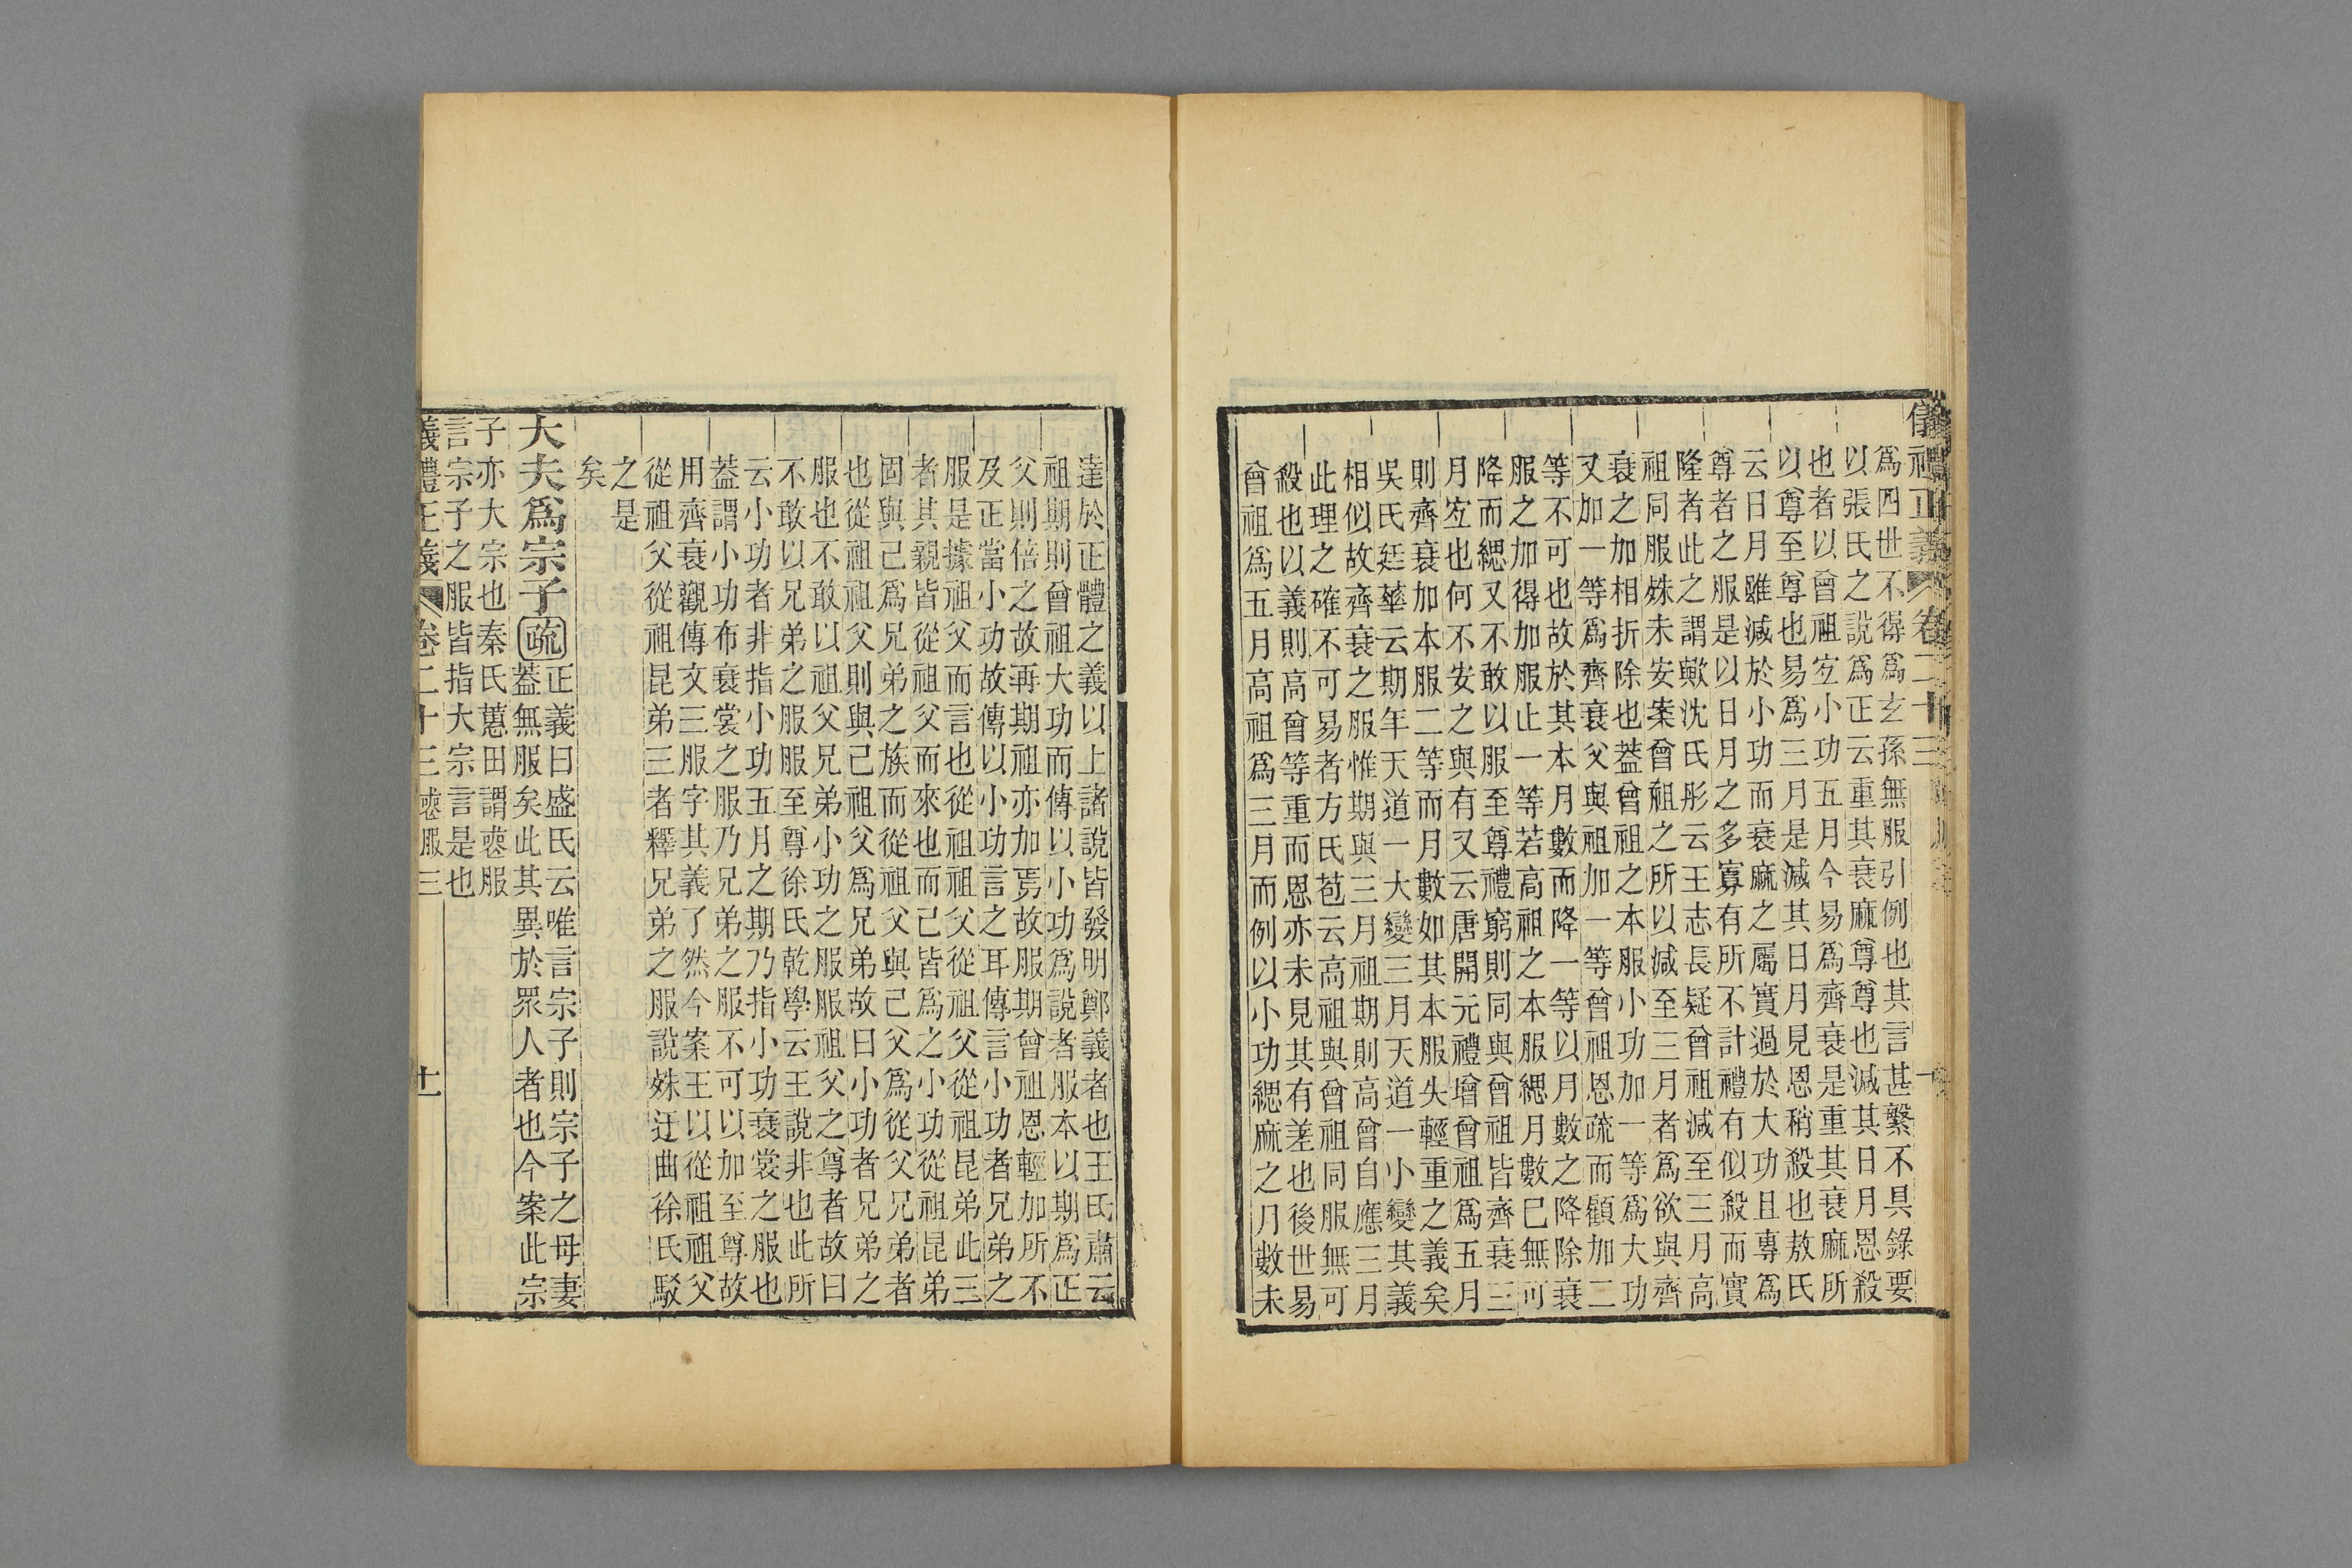 儀禮正義 卷二十三
爲四世不得爲玄孫無服引例也其言甚繁不具錄要
以張氏之說爲正云重其衰麻尊尊也減其日月恩殺
也者以曾祖宜小功五月今易爲齊衰是重其衰麻所
以尊至尊也易爲三月是減其日月見恩稍殺也敖氏
云日月雖減於小功而衰麻之屬實過於大功且專爲
尊者之服是以日月之多寡有所不計禮有似殺而實
隆者此之謂歟沈氏彤云王志長疑曾祖減至三月高
祖同服殊未安案曾祖之所以減至三月者爲欲與齊
衰之加相折除也蓋曾祖之本服小功加一等爲大功
又加一等爲齊衰父與祖加一等曾祖恩疏而顧加二
等不可也故於其本月數而降一等以月數之降除衰
服之加得加服止一等若高祖之本服緦月數已無可
降而緦又不敢以服至尊禮窮則同與曾祖皆齊衰三
月宜也何不安之與有又云唐開元禮增曾祖爲五月
則齊衰加本服二等而月數如其本服失輕重之義矣
吳氏廷華云期年天道一大變三月天道一小變其義
相似故齊衰之服惟期與三月祖期則高曾自應三月
此理之確不可易者方氏苞云高祖與曾祖同服無可
殺也以義則高曾等重而恩亦未見其有差也後世易
曾祖爲五月高祖爲三月而例以小功緦麻之月數未
達於正體之義以上諸說皆發明鄭義者也王氏肅云
祖期則曾祖大功而傳以小功爲說者服本以期爲正
父則倍之故再期祖亦加焉故服期曾祖恩輕加所不
及正當小功故傳以小功言之耳傳言小功者兄弟之
服是據祖父而言也從祖祖父從祖父從祖昆弟此三
者其親皆從祖父而來也而己皆爲之小功從祖昆弟
固與己爲兄弟之族而從祖父與己父爲從父兄弟者
也從祖祖父則與己祖父爲兄弟故曰小功者兄弟之
服也不敢以祖父兄弟小功之服服祖父之尊者故曰
不敢以兄弟之服服至尊徐氏乾學云王說非也此所
云小功者非指小功五月之期乃指小功衰裳之服也
蓋謂小功布衰裳之服乃兄弟之服不可以加至尊故
用齊衰觀傳文三服字其義了然今案王以從祖祖父
從祖父從祖昆弟三者釋兄弟之服說殊迂曲徐氏駁
之是
矣
大夫爲宗子疏
正義曰盛氏云唯言宗子則宗子之母妻
蓋無服矣此其異於眾人者也今案此宗
子亦大宗也秦氏蕙田謂喪服
言宗子之服皆指大宗言是也
義禮正義 卷二十三 喪服三 十一